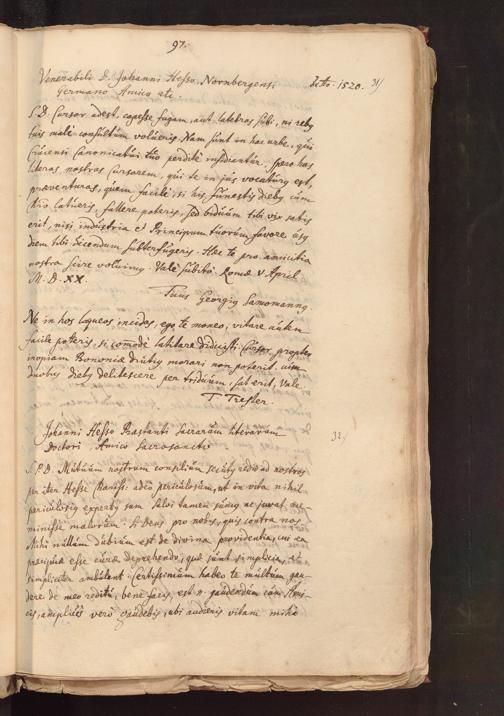 97.
Venerabili D. Johanni Hesso Nornbergensi
Germano Amico
1520. 31/
S. D. Cursor adest, capesse fugam, aut latebras tibi, ni reby
tuis male consultum volueris. Nam sunt in hac urbe, qui
Canonicatui tuo perdite insidiantur. Spero has
literas nostras Cursorem, qui te in jus vocaturg est,
praeventuras, quam facile, si his funestis dieby cum
latueris, fallere poteris, sed biduum tibi vix satis
erit, nisi industria et Principum tuorum favore
diem tibi dicendum subterfugeris. Hec te pro amicitia
nostra scire voluimus. Vale subito. Romae V April
M. D. XX.
Tuus Georgig
Ne in hos laqueos incides, ego te moneo, vitare autem
facile poteris, si comode latitare didicisti. Cursor propter
inopiam Bononiae diutig morari non poterit
duobus dieby delitescere per triduum, sat erit, Vale.
T. Tresler.
Johanni Hesso Praestanti Sacrarum literarum
Doctori, Amico Sacrosancto
32/
S. P. D. Mutuum nostrum consilium secuty redio ad nostros
per iter Hesse Chariss: adeo periculosum, ut in vita nihil
periculosig experty sum. Salvi tamen sumg ne juvat me-
minisse malorum. Si Deus pro nobis, quis contra nos.
Mihi nullum dubium est de divina providentia, cui ea
praecipuae esse curae deprehendo, quae sunt simplicia, et
simpliciter ambulant. Certissimum habeo te multum gau-
dere de meo reditu, bene facis, est n. gaudendum cum Ami-
cis, amplius vero gaudebis, ubi audieris vitam mihi